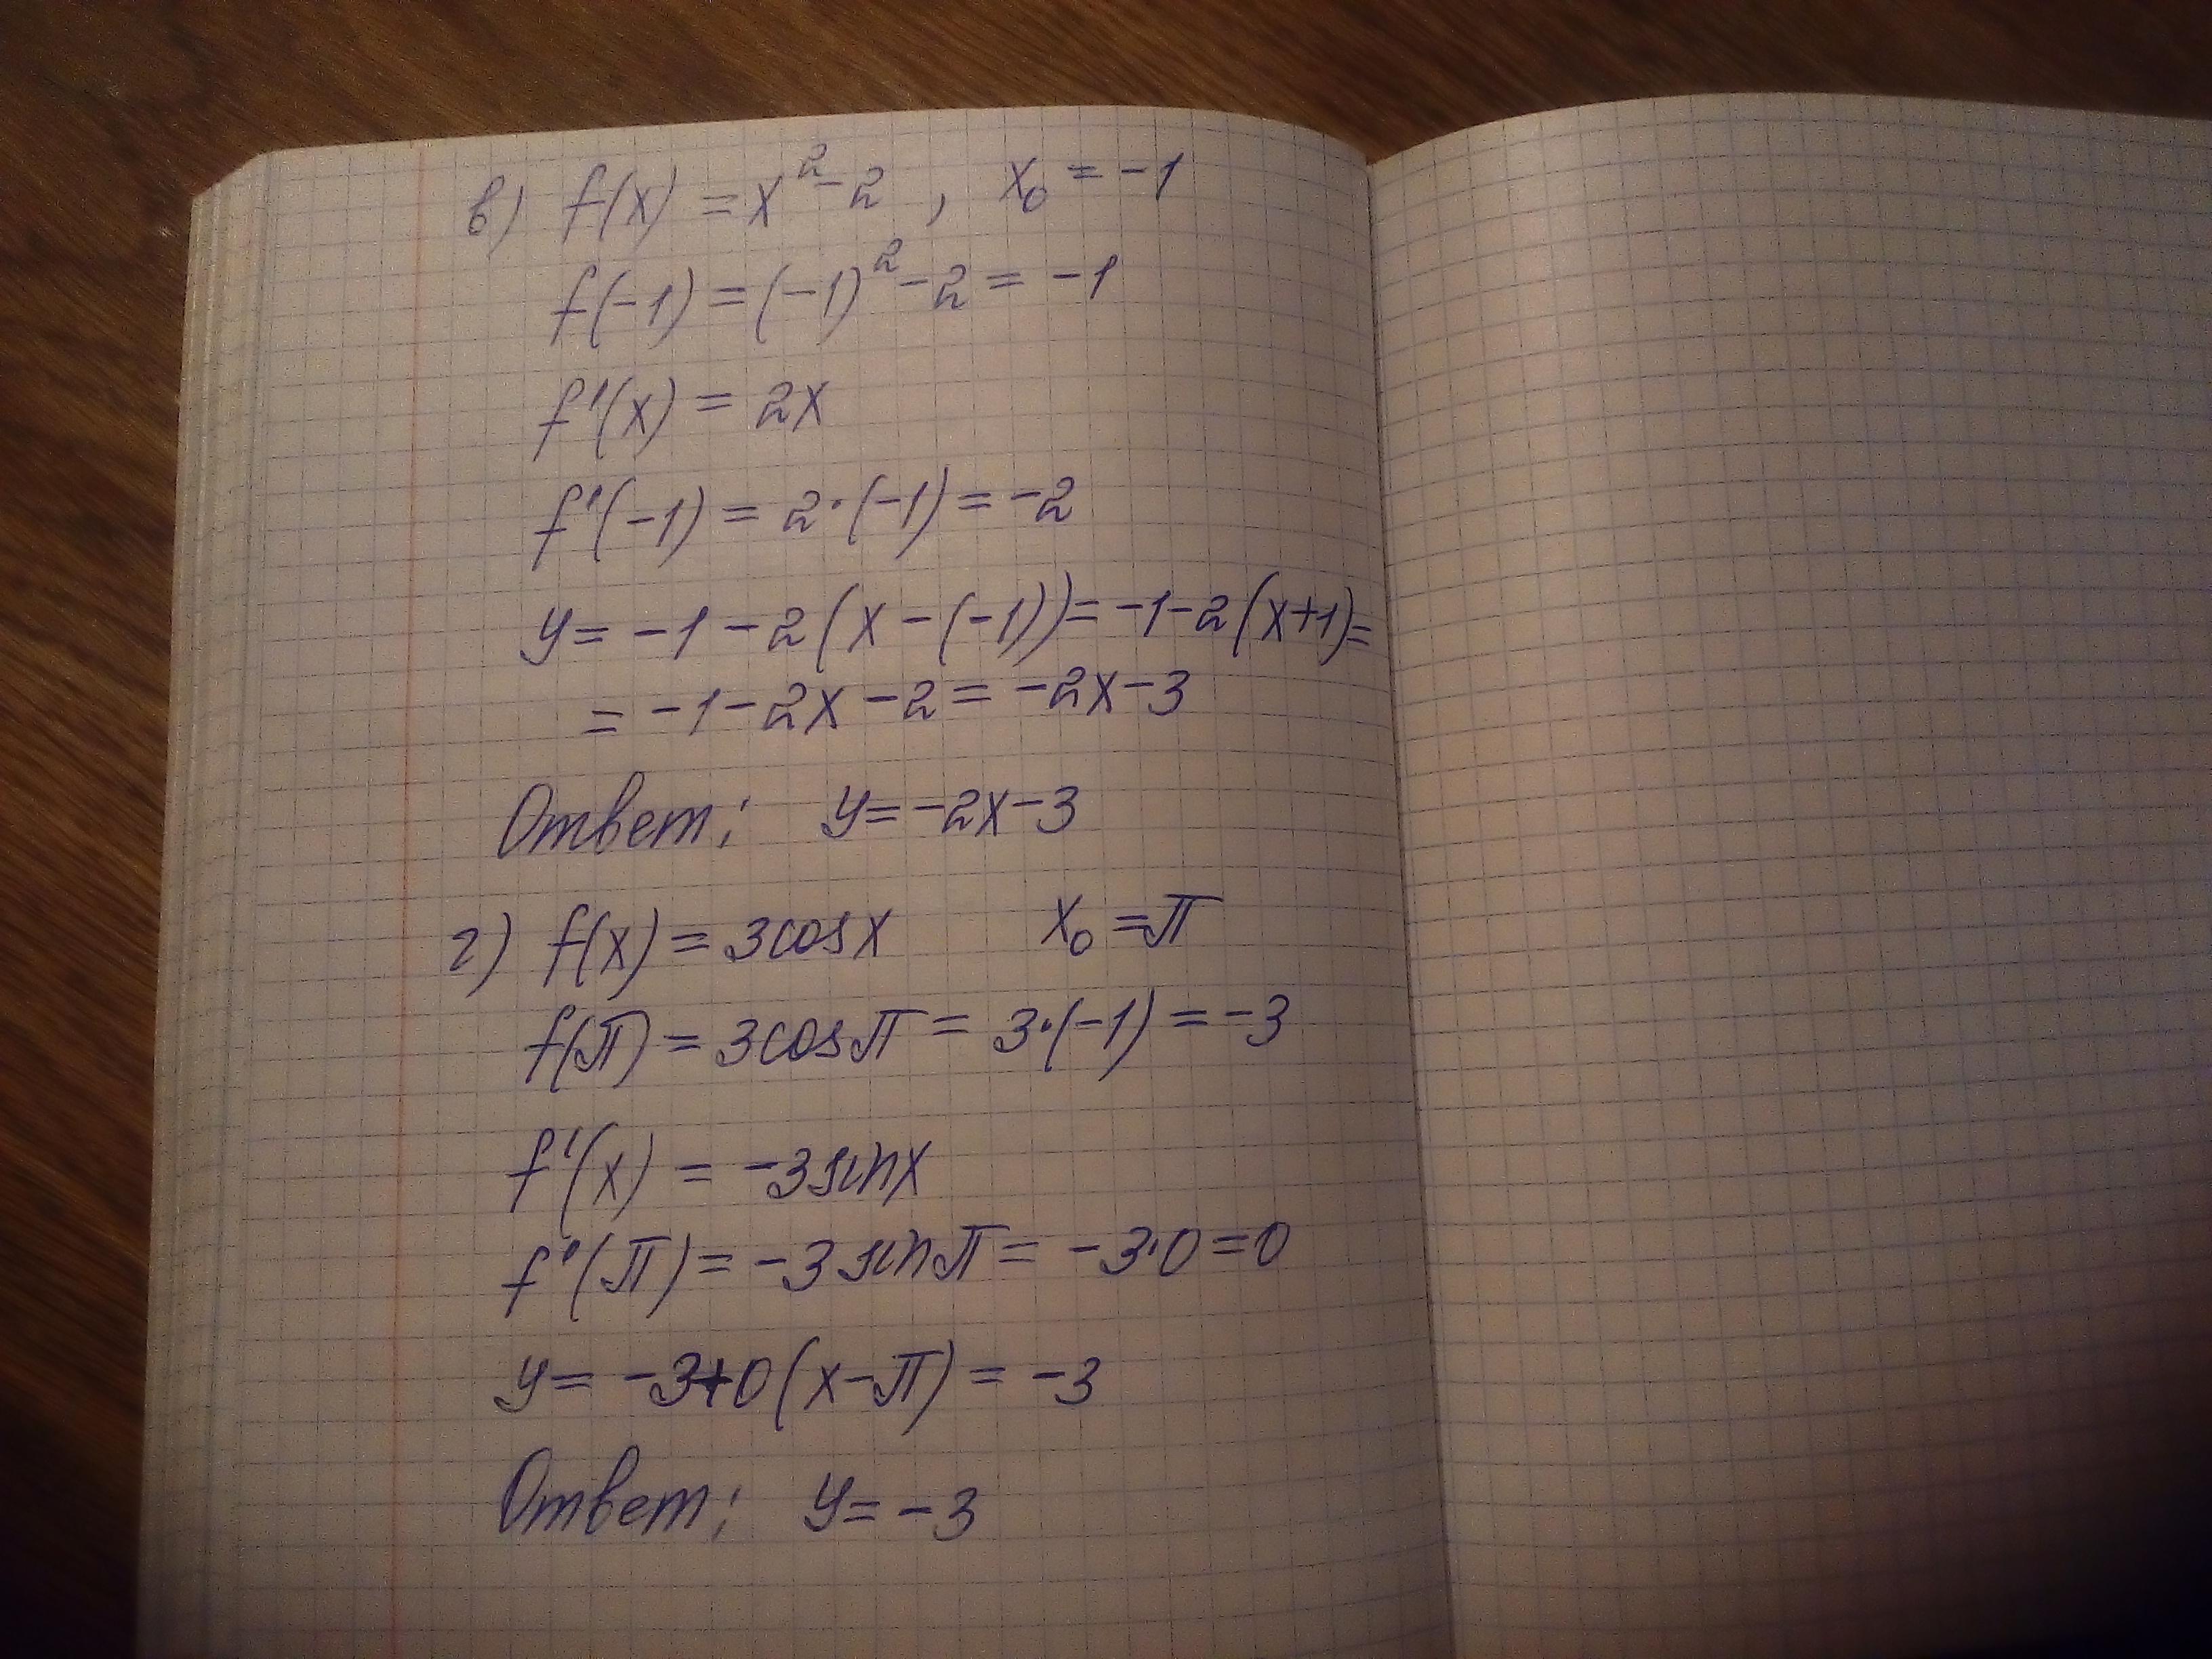 в) f(x) = x² - 2 , x₀ = -1
f(-1) = (-1)² - 2 = -1
f'(x) = 2x
f'(-1) = 2·(-1) = -2
y = -1 - 2(x - (-1)) = -1 - 2(x+1) =
= -1 - 2x - 2 = -2x - 3
Ответ: y = -2x - 3
г) f(x) = 3cosx x₀ = π
f(π) = 3cosπ = 3·(-1) = -3
f'(x) = -3sinx
f'(π) = -3sinπ = -3·0 = 0
y = -3+0(x-π) = -3
Ответ: y = -3